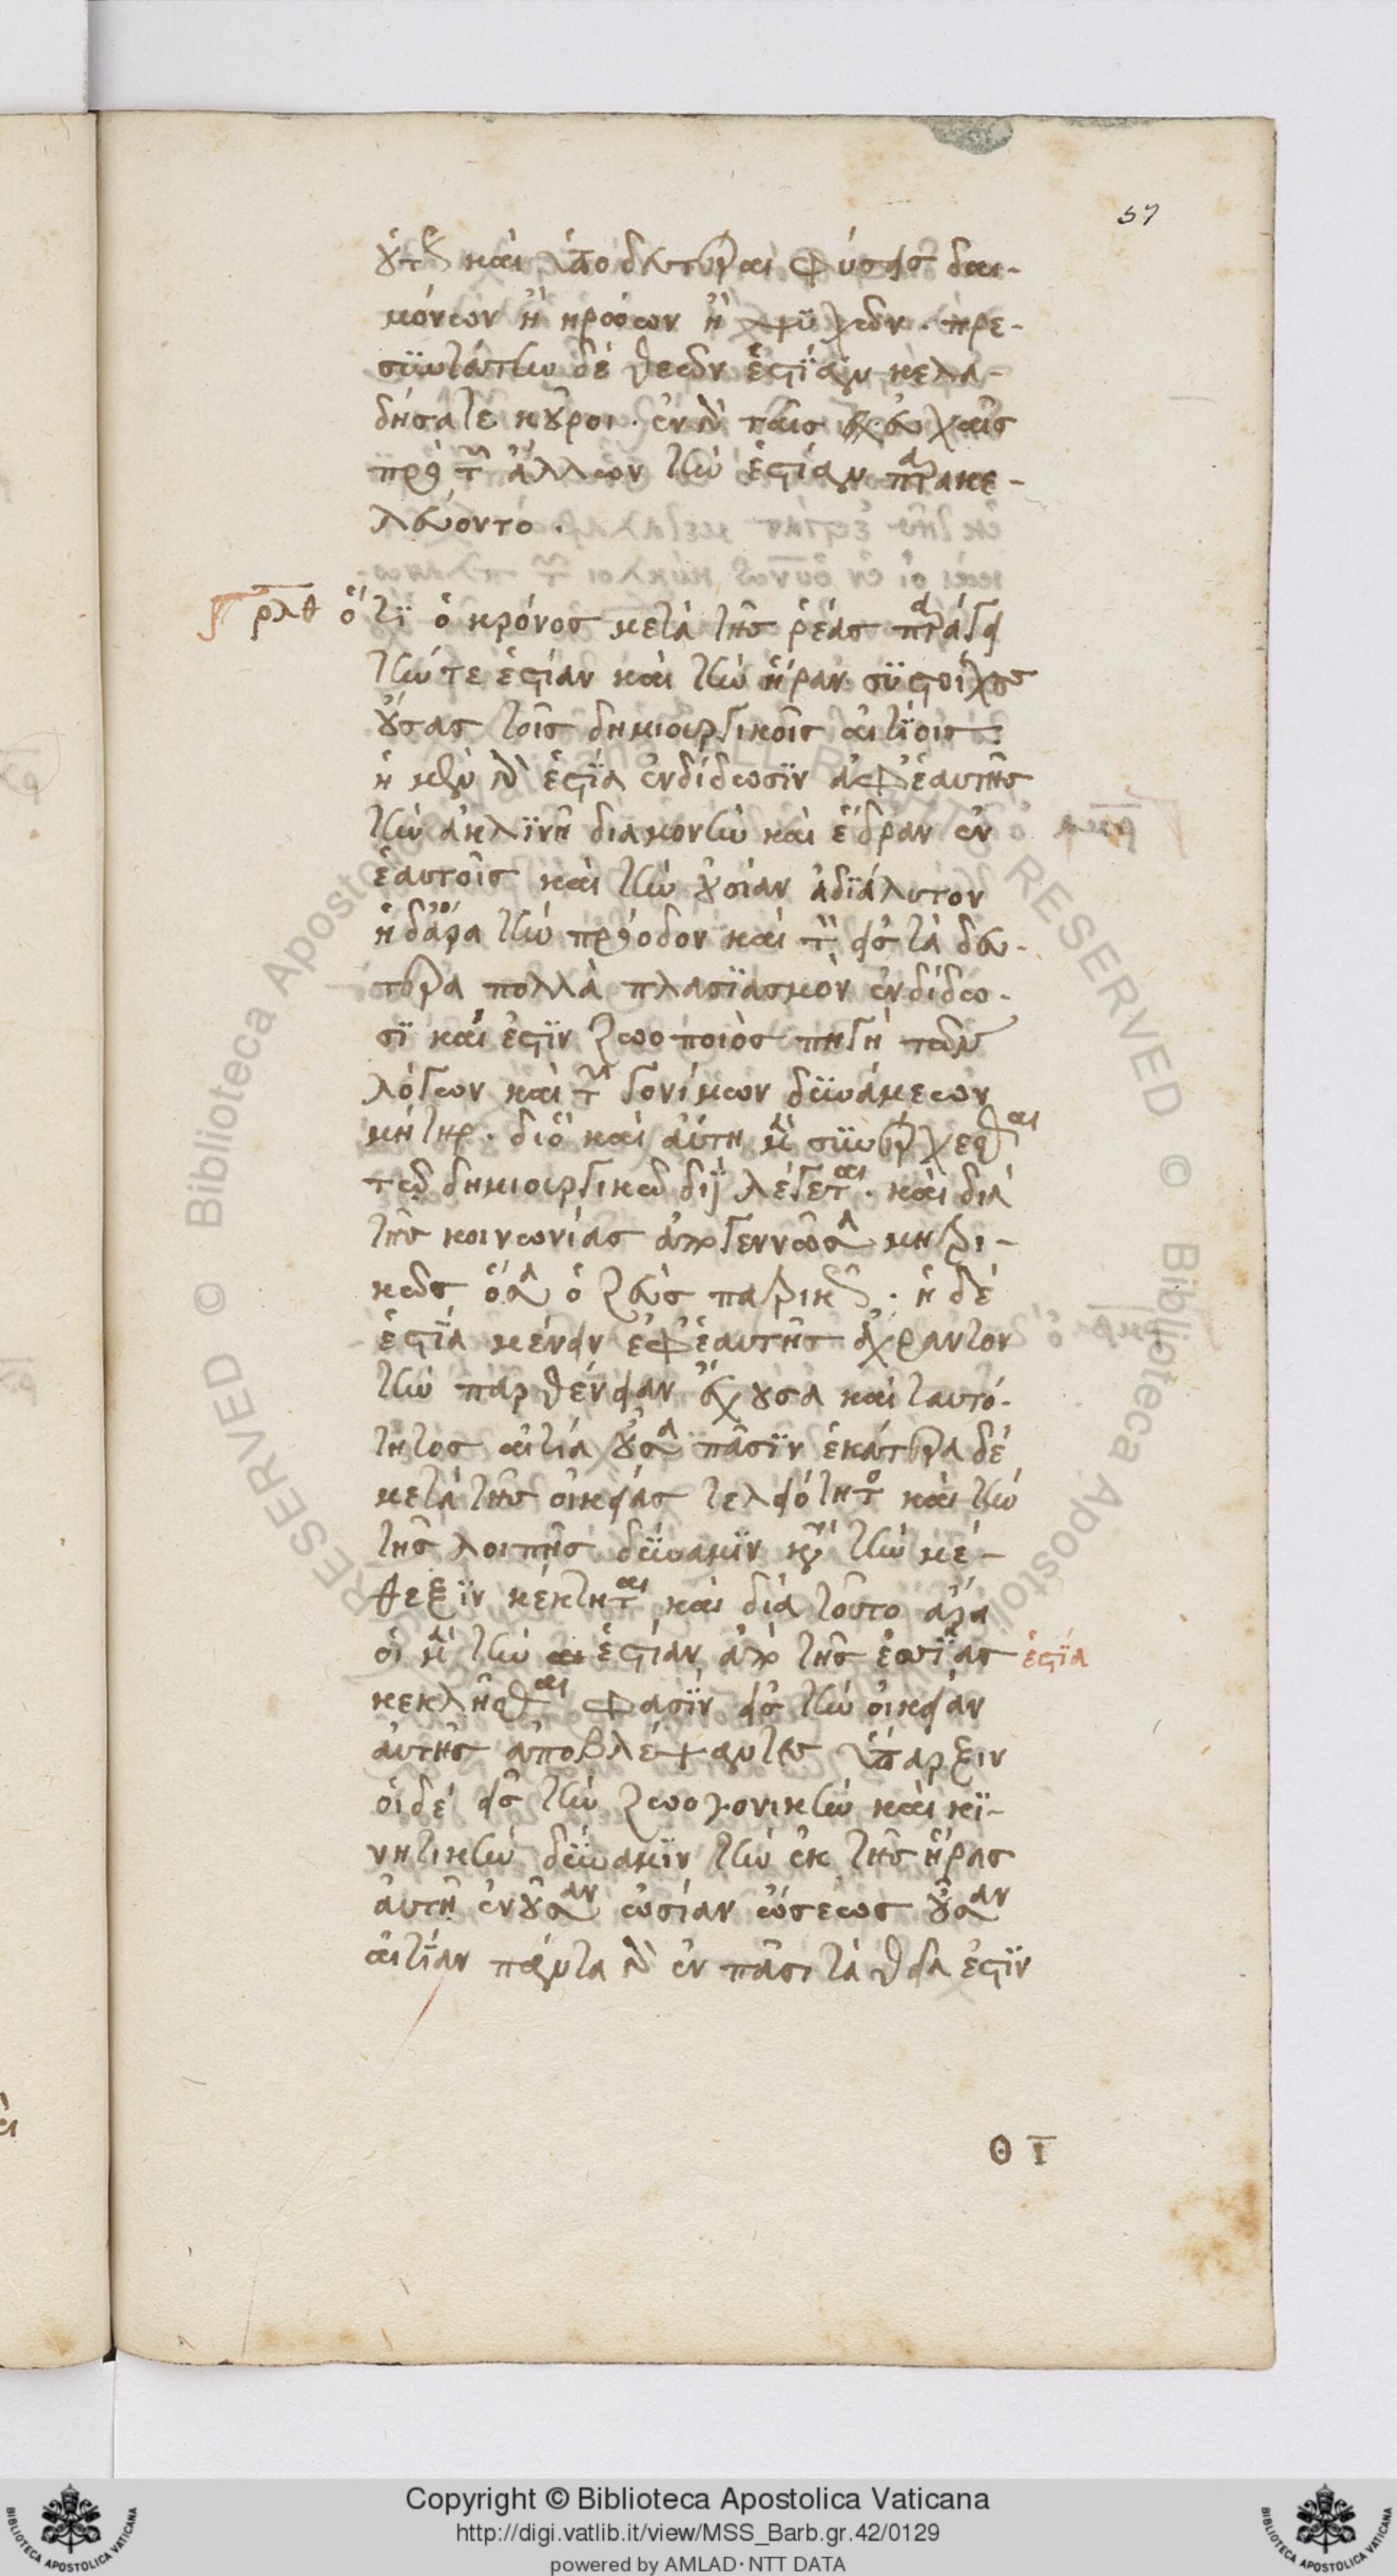 57
οὕτως καὶ ὑποδεέστεραι φύσεις δαι-
μόνων ἢ ἡρώων ἢ ψϋχῶν. πρε-
σδὲ θεῶν ἑστΐαν κελα-
δήσατε κοῦροι. ἐν δὲ ταῖς εὐχαῖς
πρὸ τῶν ἄλλων τὴν ἑστίαν παρακε-
λεύοντο.
ρλθ ὅτϊ ὁ κρόνος μετὰ τῆς ῥέας παράγει
τήν τε ἑστίαν καὶ τὴν ἥραν σϋστοίχους
οὔσας τοῖς δημιουργικοῖς αἰτΐοις
ἡ μὲν γὰρ ἑστΐα ἐνδίδωσϊν ἀφ' ἑαυτῆς
τὴν ἀκλϊνῆ διαμονὴν καὶ ἕδραν ἐν
ἑαυτοῖς καὶ τὴν οὐσίαν ἀδϊάλυτον
ἡ δὲ ἥρα τὴν πρόοδον καὶ τὸν εἰς τὰ δεύ-
τερα πολλαπλασϊασμὸν ἐνδίδω-
σϊ καὶ ἐστϊν ζωοποιὸς πηγὴ τῶν
λόγων καὶ τῶν γονίμων δϋνάμεων
μήτηρ. διὸ καὶ αὕτη μὲν σϋνέρχεσθαι
τῷ δημιουργικῷ διῒ λέγεται. καὶ διὰ
τῆς κοινωνίας ἀπογεννῶσα μητρι-
κῶς ὅσα ὁ ζεὺς πατρικῶς. ἡ δὲ
ἑστΐα μένειν ἐφ' ἑαυτῆς ἄχραντον
τὴν παρθένειαν ἔχουσα καὶ ταυτό-
τητος αἰτία οὖσα πᾶσϊν ἑκάτερα δὲ
μετὰ τῆς οἰκείας τελειότητος καὶ τὴν
τῆς λοιπῆς δΰναμϊν κατὰ τὴν μέ-
θεξϊν κέκτηται καὶ διὰ τοῦτο ἄρα
οἱ μὲν τὴν ἑστίαν ἀπὸ τῆς ἐσσΐας ἑστΐα
κεκλῆσθαι φασϊν εἰς τὴν οἰκείαν
αὐτῆς ἀποβλέψαντες ὕπαρξιν
οἱ δὲ εἰς τὴν ζωογονικὴν καὶ κϊ-
νητικὴν δΰναμϊν τὴν ἐκ τῆς ἥρας
αὐτῇ ἐνοῦσαν ὠσίαν ὤσεως οὖσαν
αἰτίαν πάντα γὰρ ἐν πᾶσι τὰ θεῖα ἐστϊν
θ ι
Copyright © Biblioteca Apostolica Vaticana
http://digi.vatlib.it/view/MSS_Barb.gr.42/0129
powered by AMLAD·NTT DATA